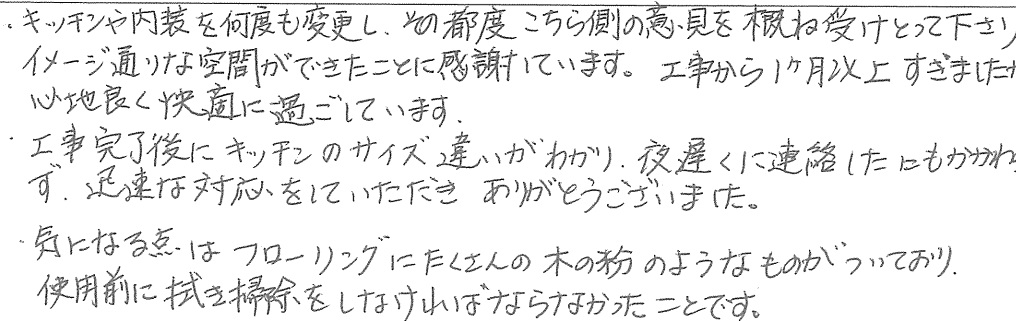 ・キッチンや内装を何度も変更し、その都度こちら側の意見を概ね受けとって下さり
イメージ通りな空間ができたことに感謝しています。工事から1ヶ月以上すぎましたが
心地良く快適に過ごしています。
・工事完了後にキッチンのサイズ違いがわかり、夜遅くに連絡したにもかかわら
ず、迅速な対応をしていただきありがとうございました。
・気になる点はフローリングにたくさんの木の粉のようなものがついており、
使用前に拭き掃除をしなければならなかったことです。